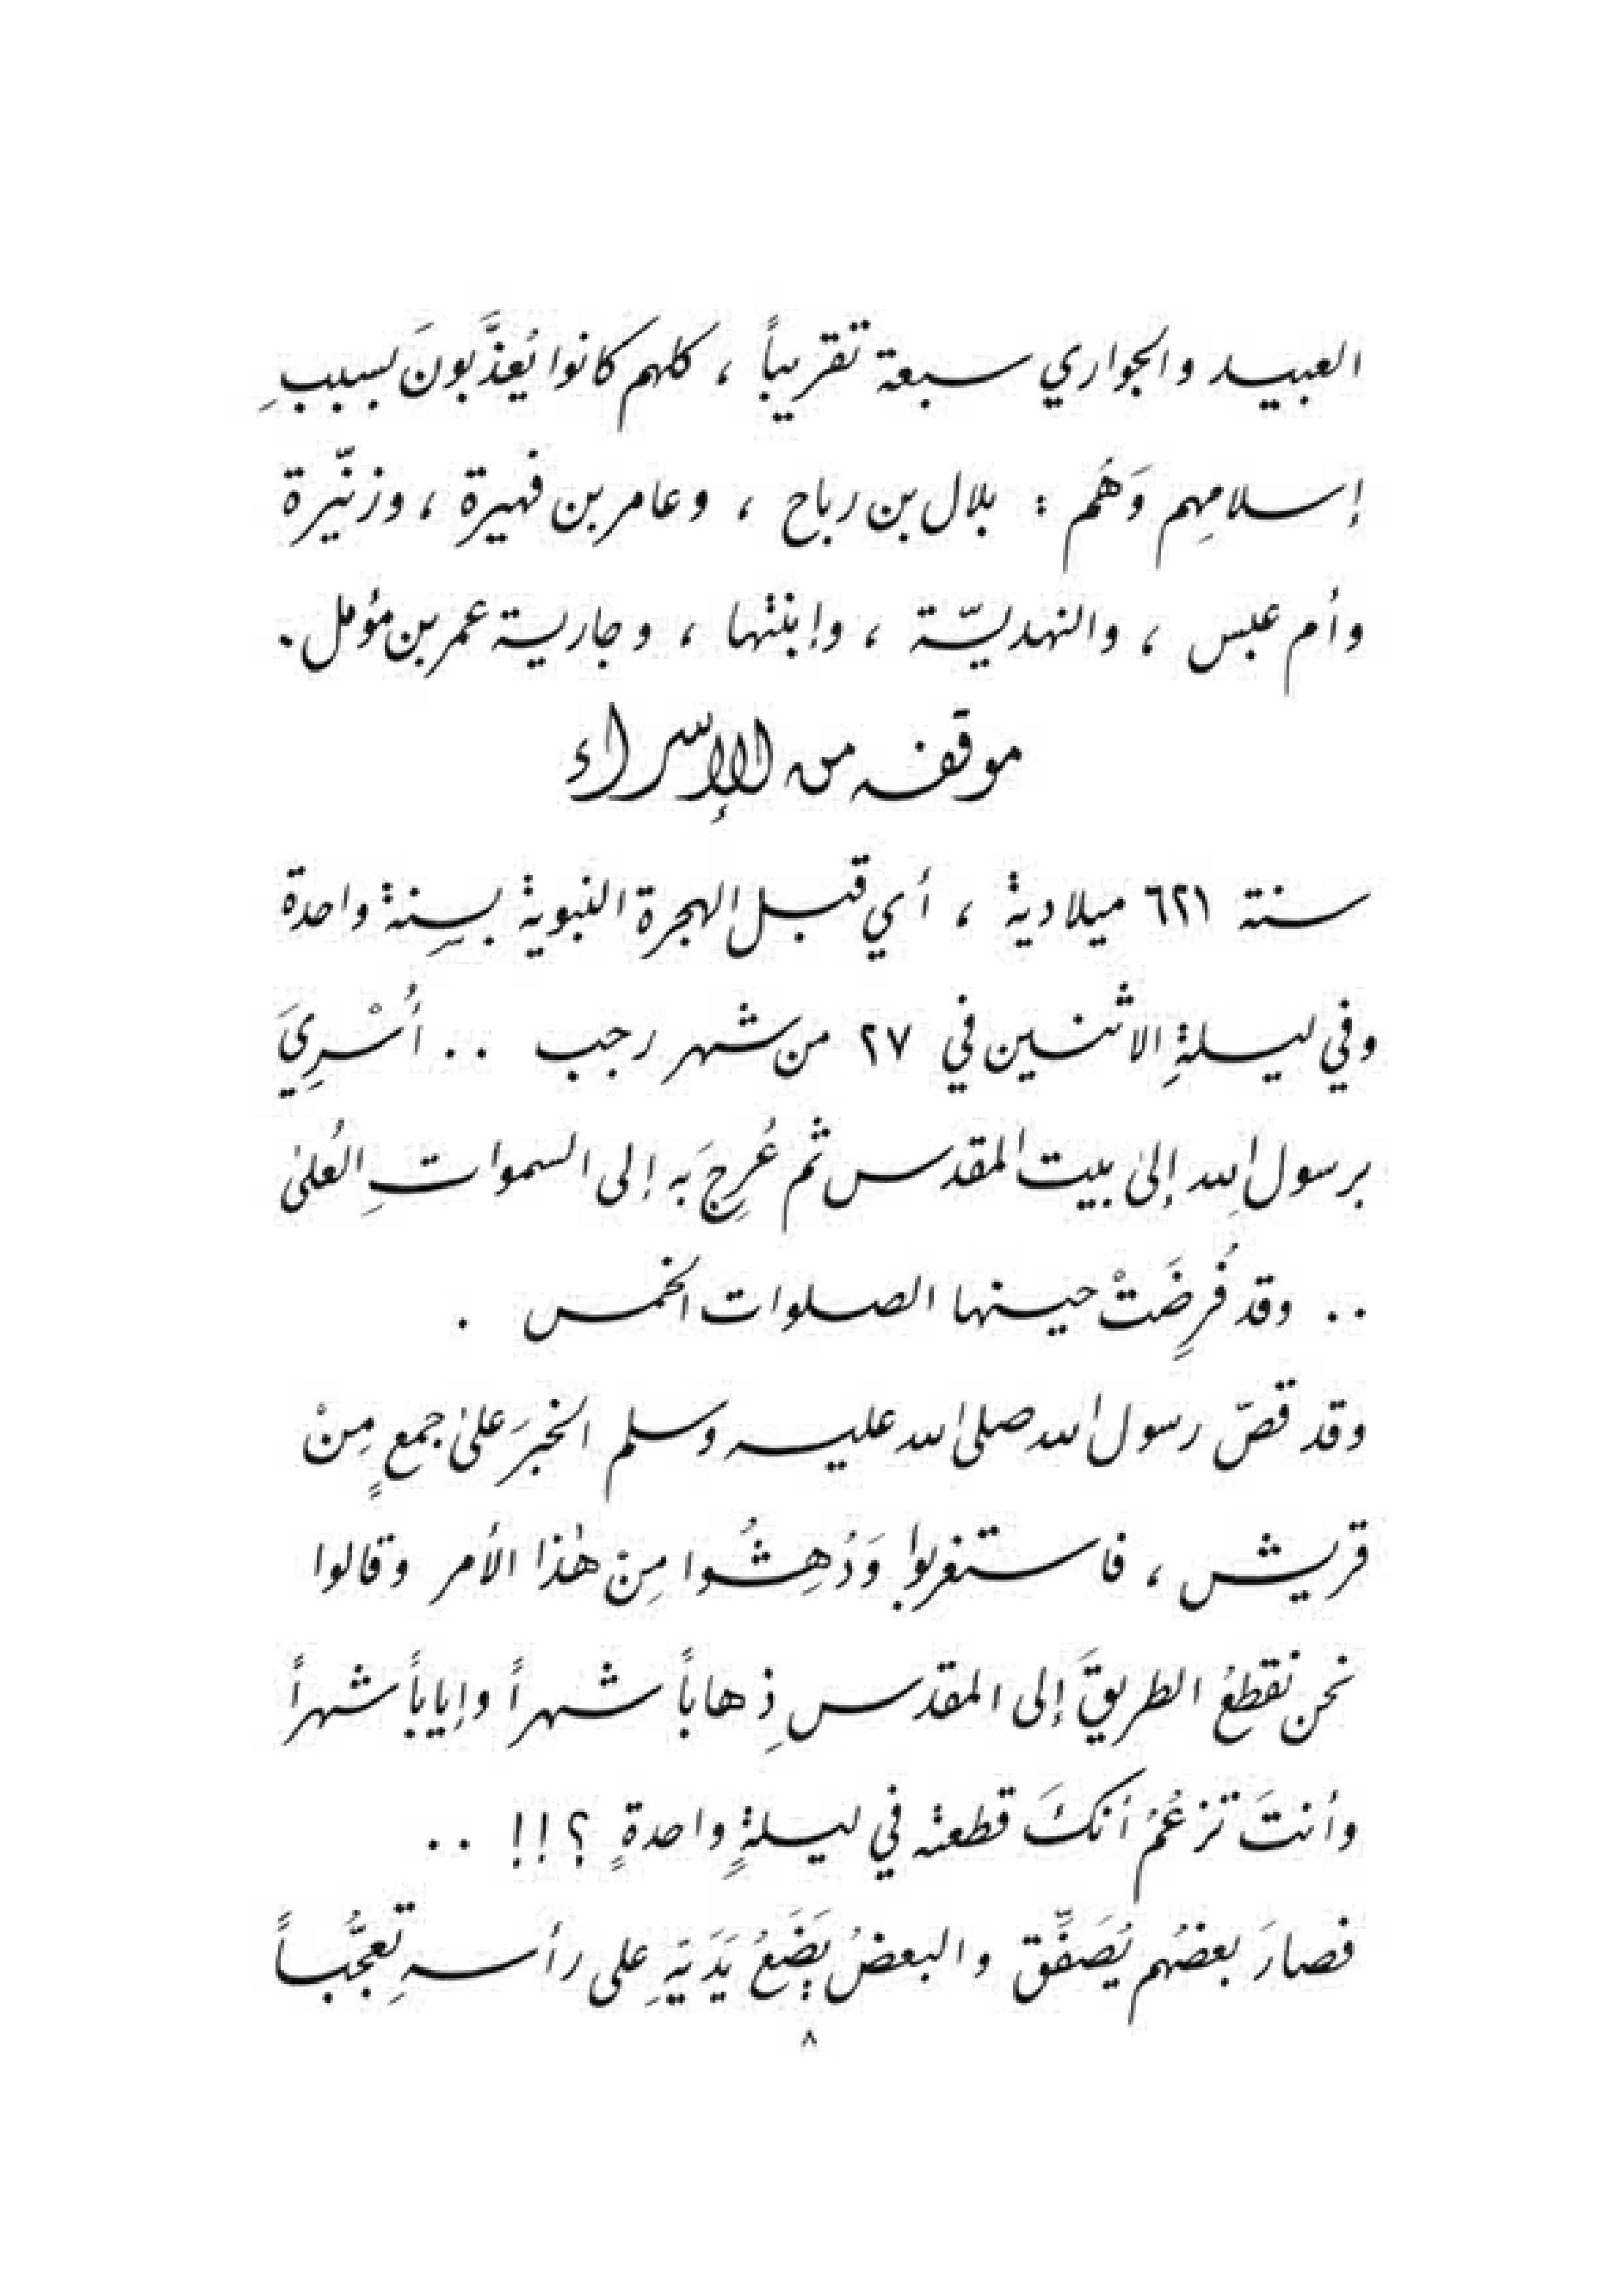 العبيد والجواري سبعة تقريباً ، كلهم كانوا يُعذَّبونَ بسببِ
إسلامِهم وَهُم : بلال بن رباح ، وعامر بن فهيرة ، وزنّيرة
وأم عبس ، والنهديّة ، وإبنتها ، وجارية عمر بن مؤمل .
موقفه من الإسراء
سنة ٦٢١ ميلادية ، أي قبل الهجرة النبوية بسِنة واحدة
وفي ليلةِ الاثنين في ٢٧ من شهر رجب .. أُسْرِيَ
برسول الله إلىٰ بيت المقدس ثم عُرِجَ به إلى السمواتِ العُلىٰ
.. وقد فُرِضَتْ حينها الصلوات الخمس .
وقد قصّ رسول الله صلى الله عليه وسلم الخبرَ علىٰ جمعٍ مِنْ
قريش ، فاستغربوا وَدُهِشُوا مِنْ هٰذا الأمر وقالوا
نحن نقطعُ الطريقَ إلى المقدس ذِهاباً شهراً وإياباً شهراً
وأنتَ تزعُمُ أنكَ قطعته في ليلةٍ واحدةٍ ؟!! ..
فصارَ بعضُهم يُصَفِّق والبعضُ يَضَعُ يَدَيَهِ على رأسهِ تعجُّباً
٨